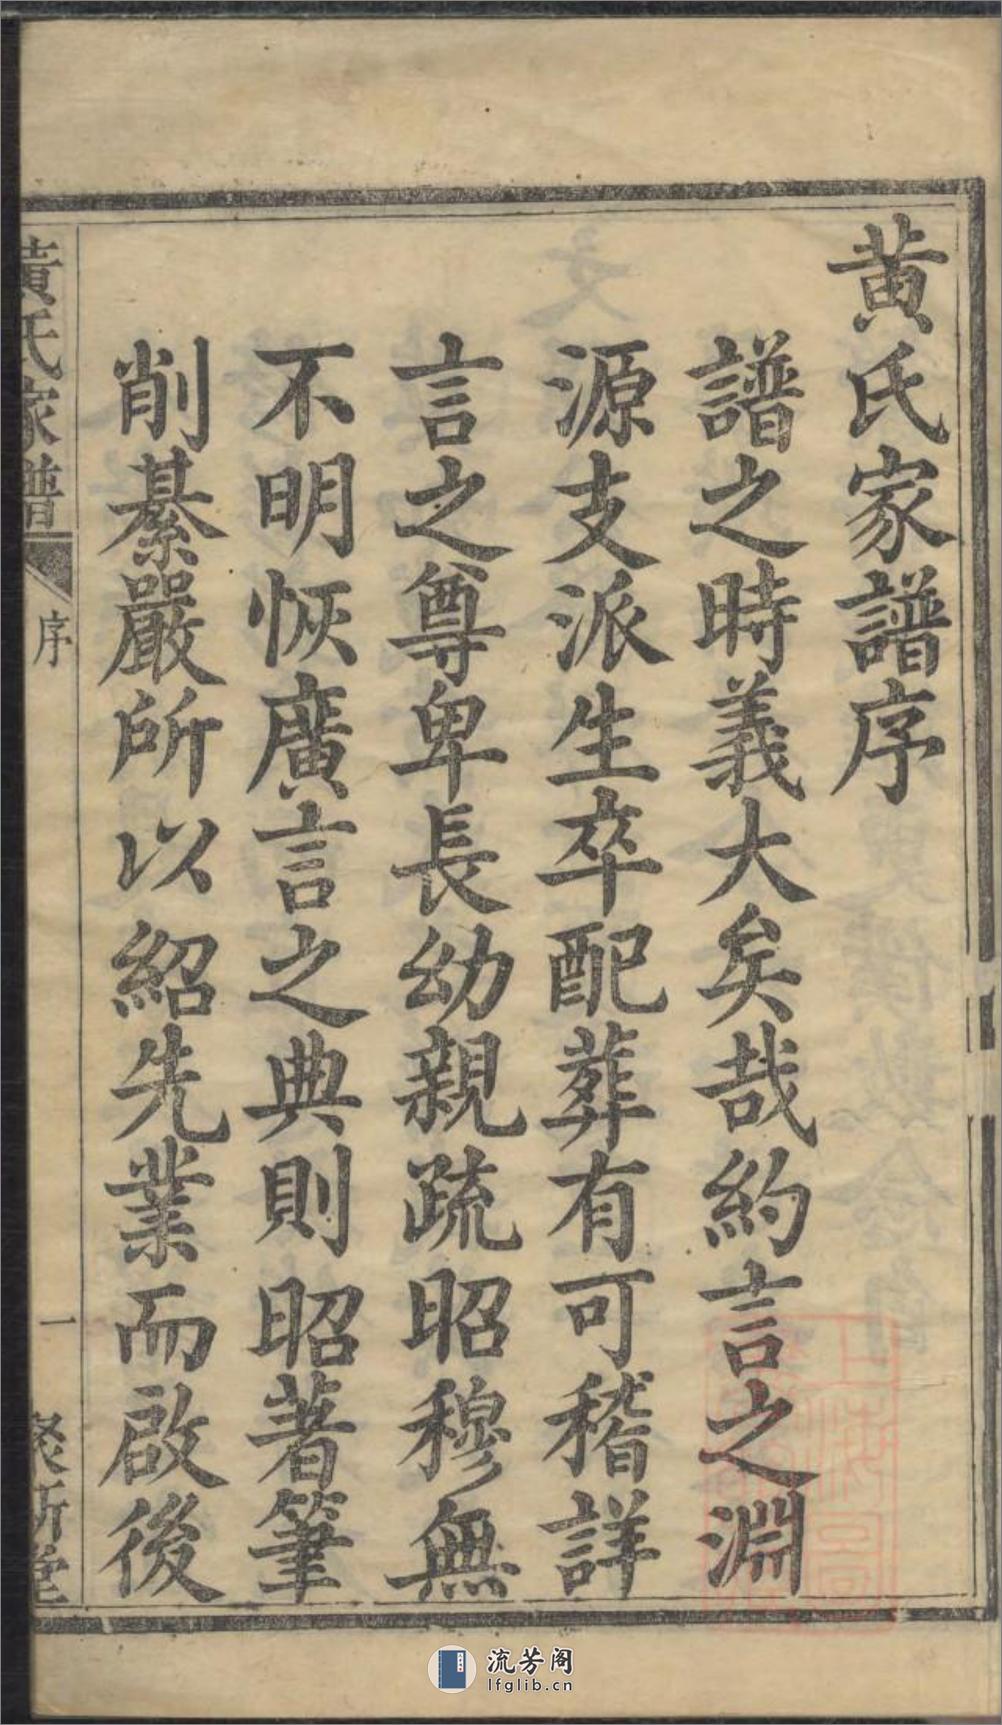 黃氏家譜序
譜之時義大矣哉約言之淵
源支派生卒配葬有可稽詳
言之尊卑長幼親疏昭穆無
不明恢廣言之典則昭著筆
削綦嚴所以紹先業而啟後
黃氏家譜
序
一
堂
流芳阁
lfglib.cn